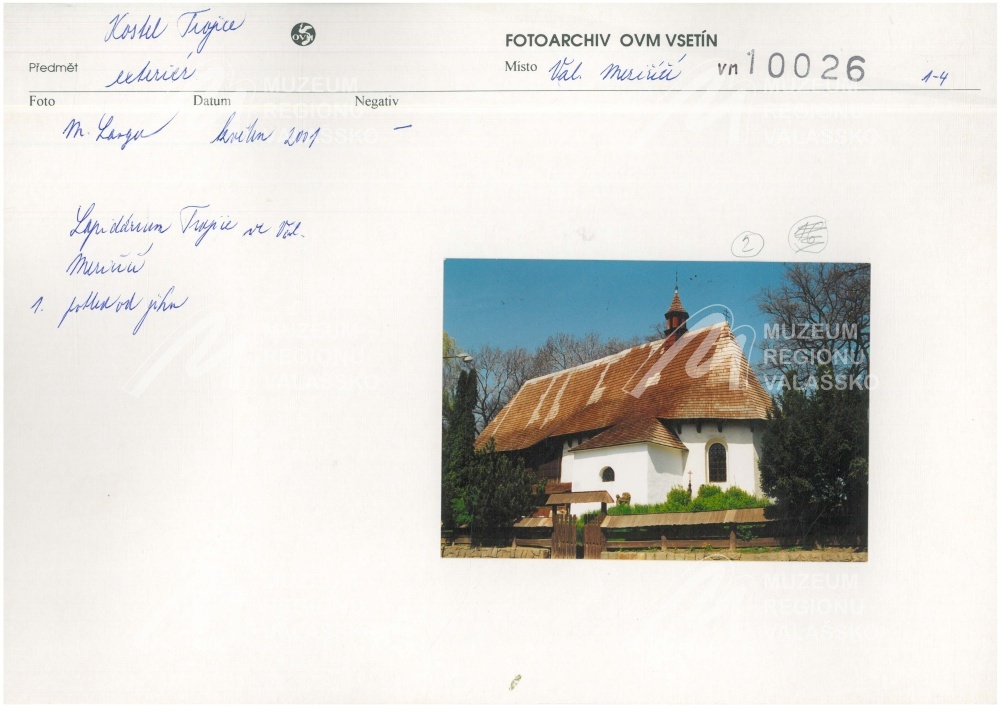 Kostel Trojice
OVM
FOTOARCHIV OVM VSETÍN
Předmět
exteriér
Místo Val. Meziříčí vn 10026 1-4
Foto Datum Negativ
M. Langer květen 2001 —
Lapidárium Trojice ve Val.
Meziříčí
1. pohled od jihu
2
MUZEUM
REGIONU
VALAŠSKO
MUZEUM
REGIONU
VALAŠSKO
MUZEUM
REGIONU
VALAŠSKO
MUZEUM
REGIONU
VALAŠSKO
MUZEUM
REGIONU
VALAŠSKO
MUZEUM
REGIONU
VALAŠSKO